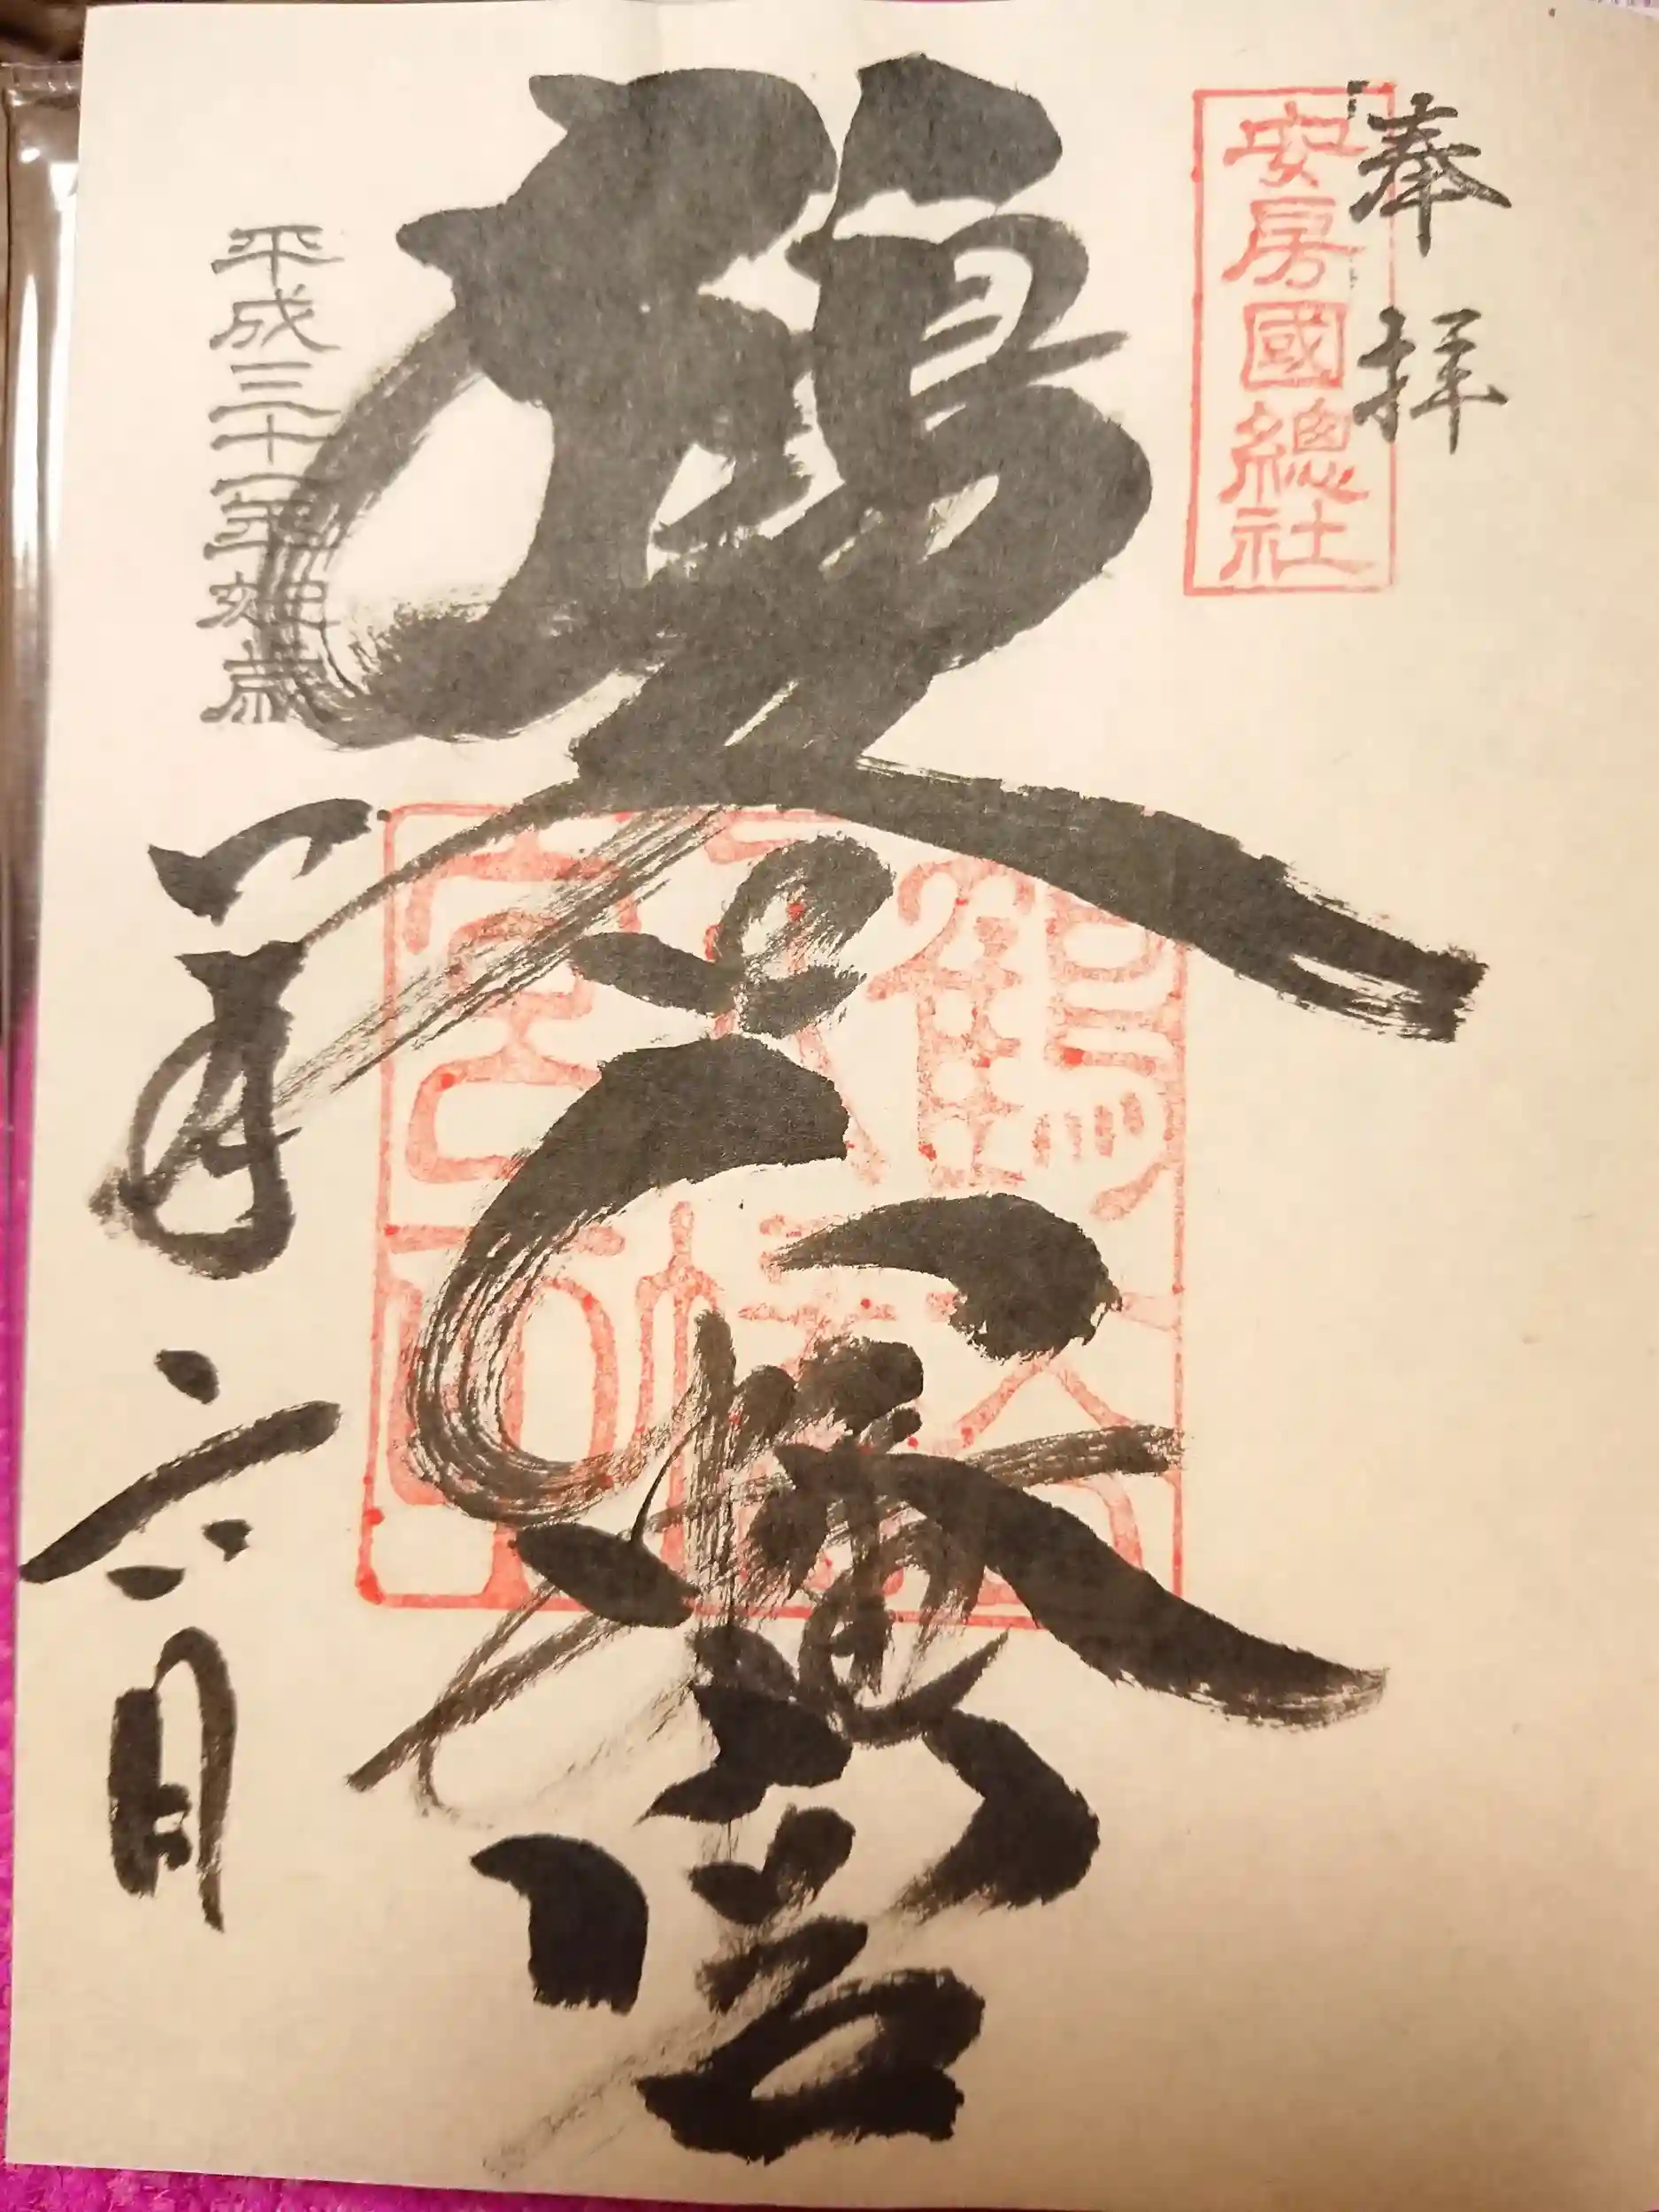 奉拝
安房國總社
鶴谷八幡宮
鶴谷八幡宮印
平成三十一年如歳
一月六日